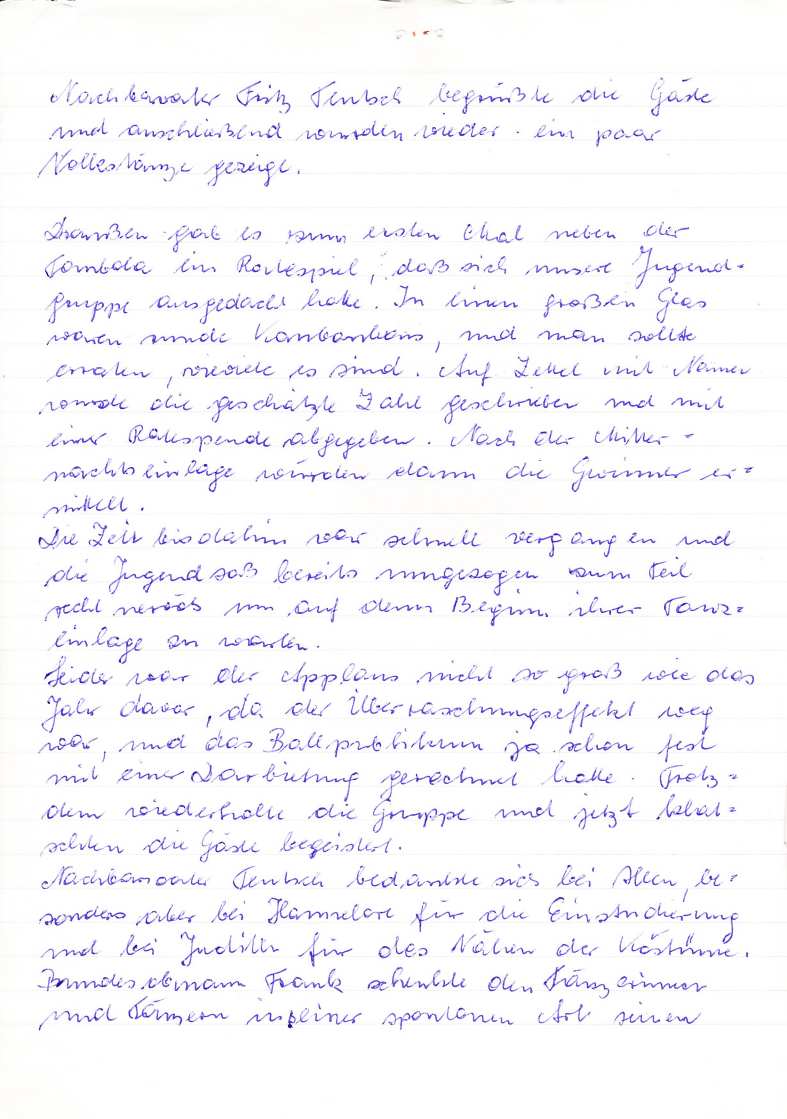 Nachbarvater Fritz Teutsch begrüßte die Gäste
und anschließend wurden wieder ein paar
Volkstänze gezeigt.
Draußen gab es zum ersten Mal neben der
Tombola ein Ratespiel, daß sich unsere Jugend-
gruppe ausgedacht hatte. In einen großen Glas
waren runde Kaubonbons, und man sollte
erraten, wieviele es sind. Auf Zettel mit Namen
wurde die geschätzte Zahl geschrieben und mit
einer Ratespende abgegeben. Nach der Mitter-
nachtseinlage wurden dann die Gewinner er-
mittelt.
Die Zeit bis dahin war schnell vergangen und
die Jugend saß bereits umgezogen zum Teil
recht nervös um auf denn Beginn ihrer Tanz-
einlage zu warten.
Leider war der Applaus nicht so groß wie das
Jahr davor, da der Überraschungseffekt weg
war, und das Ballpublikum ja schon fest
mit einer Darbietung gerechnet hatte. Trotz-
dem wiederholte die Gruppe und jetzt klat-
schten die Gäste begeistert.
Nachbarvater Teutsch bedankte sich bei Allen, be-
sonders aber bei Hannelore für die Einstudierung
und bei Judith für das Nähen der Kostüme.
Bundesobmann Frank schenkte den Tänzerinnen
und Tänzern in seiner spontanen Art seinen